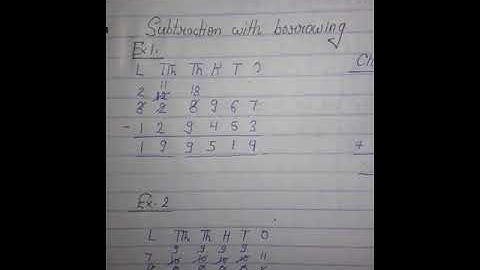 Subtraction with borrowing
Ex 1.
L TTh Th H T O
11
2 12 18
3 2 8 9 6 7
- 1 2 9 4 5 3
1 9 9 5 1 4
+
Ex. 2
L TTh Th H T O
9 9 9 9
7 10 10 10 10 11